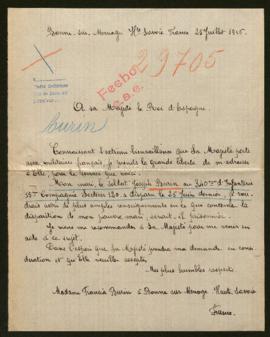 Bonne sur Menoge Hte Savoie France 28 Juillet 1915
29705
Fecho
A sa Majesté le Roi d'Espagne
burin
Connaissant l'extrême bienveillance que Sa Majesté porte
aux militaires français, je prends la grande liberté de m'adresser
à Elle, pour le service que voici.
Mon mari, le soldat Joseph Burin au 340me d'Infanterie
Compagnie Secteur disparu le 25 Juin dernier, je voudrais
avoir le plus amples renseignements en ce que concerne la
disposition de mon pauvre mari, serait-il prisonnier.
Je viens me recommander à Sa Majesté pour me venir en
aide à ce sujet.
Dans l'espoir que Sa Majesté prendra ma demande en considération
et qu'Elle veuille accepter
Mes plus humbles respects
Madame Francia Burin à Bonne sur Menoge Haute Savoie
France